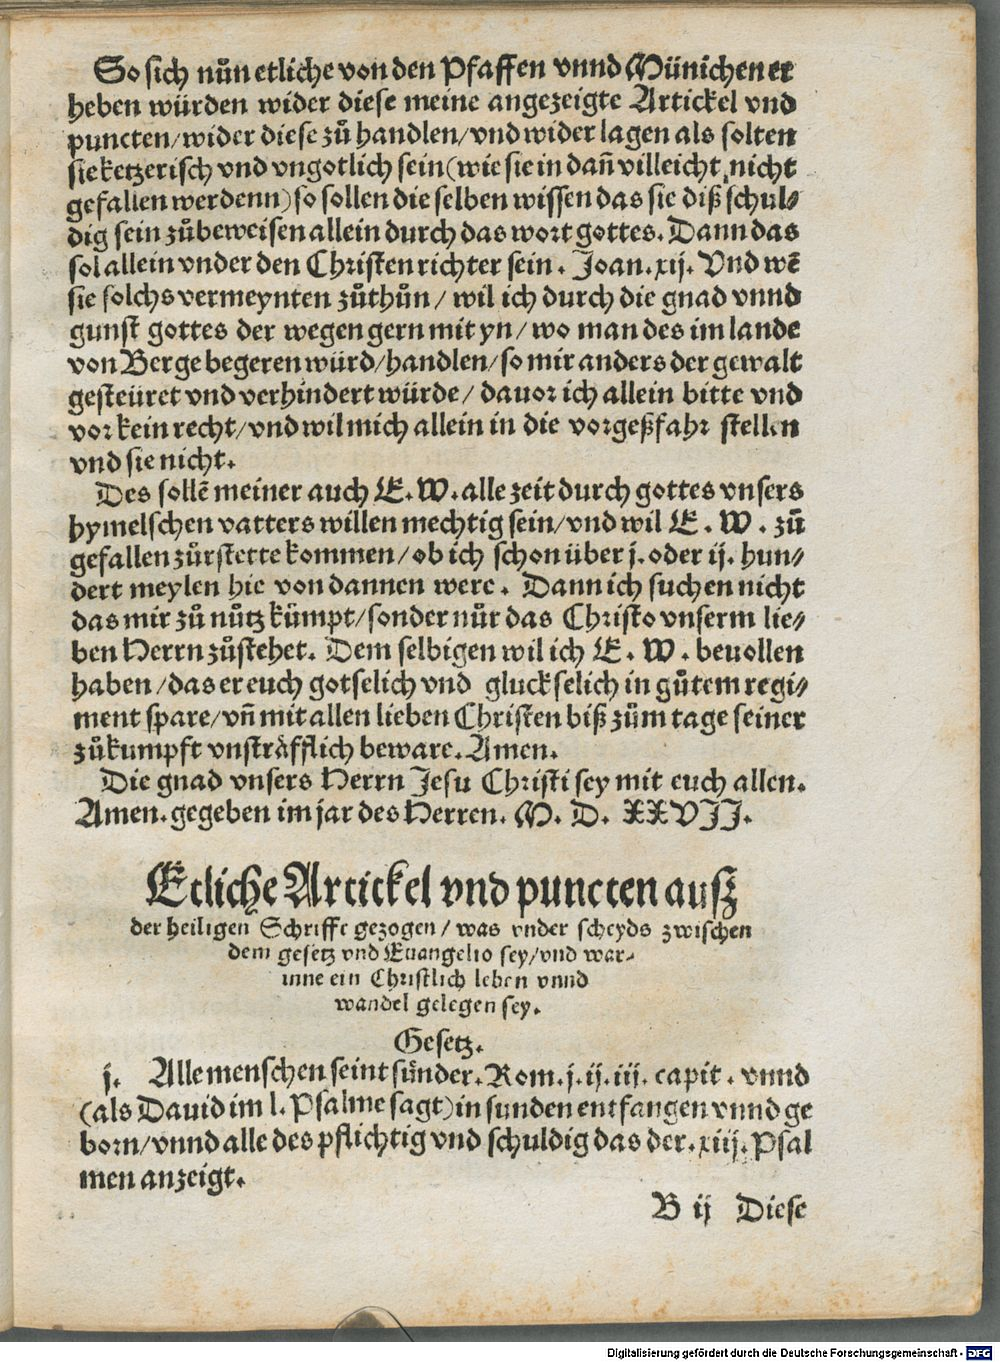 So sich nůn etliche von den Pfaffen vnnd Münichen er
heben würden wider diese meine angezeigte Artickel vnd
puncten/wider diese zů handlen/vnd wider lagen als solten
sie ketzerisch vnd vngotlich sein(wie sie in dañ villeicht nicht
gefallen werdenn)so sollen die selben wissen das sie diß schul⸗
dig sein zůbeweisen allein durch das wort gottes. Dann das
sol allein vnder den Christen richter sein. Joan.xij. Vnd wē
sie solchs vermeynten zůthůn/ wil ich durch die gnad vnnd
gunst gottes der wegen gern mit yn/ wo man des im lande
von Berge begeren würd/handlen/so mir anders der gewalt
gesteüret vnd verhindert würde/ dauor ich allein bitte vnd
vor kein recht/vnd wil mich allein in die vorgeßfahr stellen
vnd sie nicht.
Des sollē meiner auch E.W.alle zeit durch gottes vnsers
hymelschen vatters willen mechtig sein/vnd wil E.W. zů
gefallen zůrstette kommen/ob ich schon über j.oder ij.hun⸗
dert meylen hie von dannen were. Dann ich suchen nicht
das mir zů nůtz kümpt/sonder nůr das Christo vnserm lie⸗
ben Herrn zůstehet. Dem selbigen wil ich E.W. beuollen
haben/das er euch gotselich vnd gluckselich in gůtem regi⸗
ment spare/vñ mit allen lieben Christen biß zům tage seiner
zůkumpft vnsträfflich beware.Amen.
Die gnad vnsers Herrn Jesu Christi sey mit euch allen.
Amen.gegeben im jar des Herren. M. D. XXVII.
Etliche Artickel vnd puncten ausz
der heiligen Schrifft gezogen/ was vnder scheyds zwischen
dem gesetz vnd Euangelio sey/vnd war⸗
inne ein Christlich leben vnnd
wandel gelegen sey.
Gesetz.
j. Alle menschen seint sünder.Rom.j.ij.iij.capit. vnnd
(als Dauid im l.Psalme sagt)in sunden entfangen vnnd ge
born/vnnd alle des pflichtig vnd schuldig das der.xiij.Psal
men anzeigt.
B ij Diese
Digitalisierung gefördert durch die Deutsche Forschungsgemeinschaft - DFG